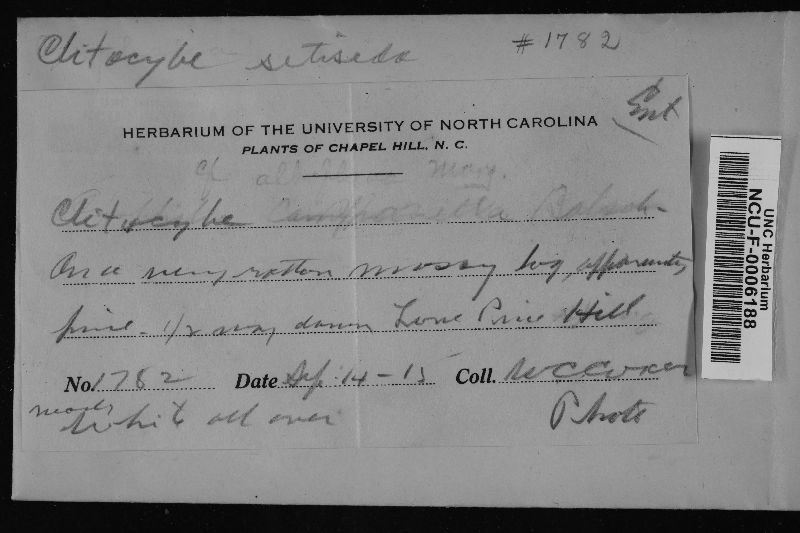 Clitocybe setiseda #1782
Ent
HERBARIUM OF THE UNIVERSITY OF NORTH CAROLINA
PLANTS OF CHAPEL HILL, N. C.
Clitocybe
On a very rotten mossy log, apparently
pine - 1/2 way down Lone Pine Hill
No. 1782 Date Sep. 14-15 Coll. W C Coker
nearly white all over Photo
UNC Herbarium
NCU-F-0006188